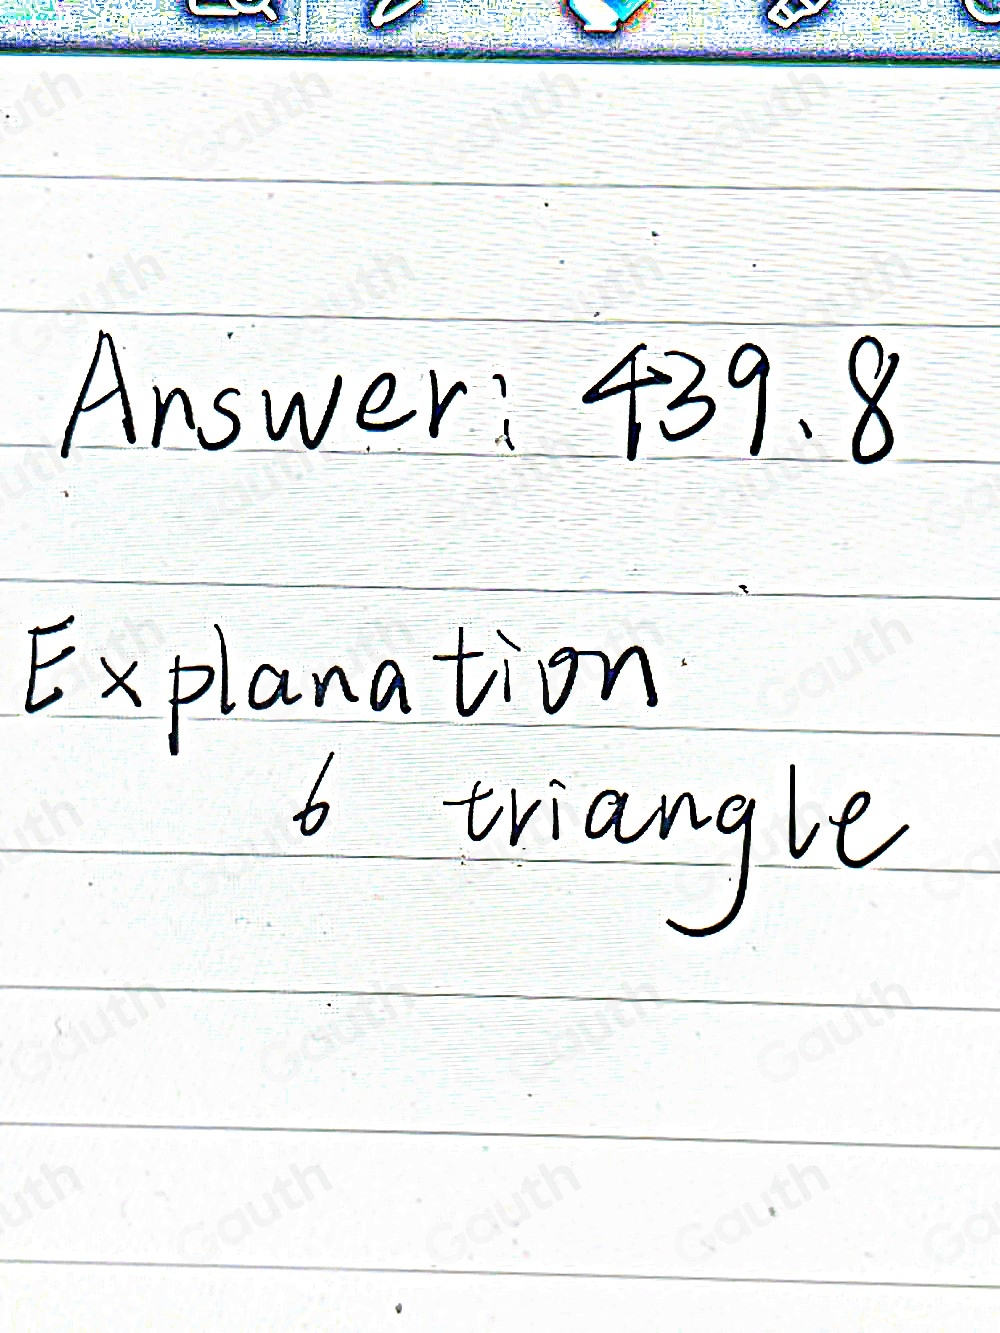 Answer: 439.8
Explanation
6 triangle